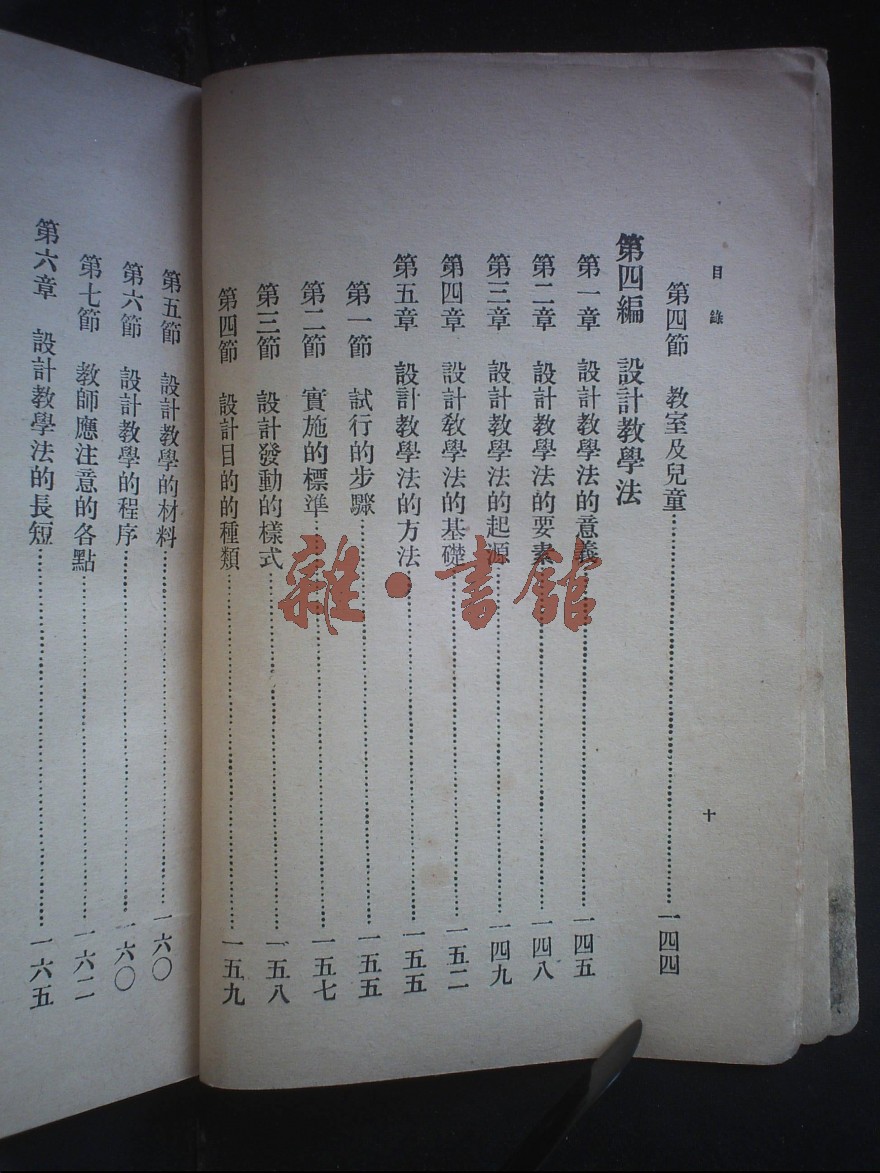 目錄
十
第四節 教室及兒童……一四四
第四編 設計教學法
第一章 設計教學法的意義……一四五
第二章 設計教學法的要素……一四八
第三章 設計教學法的起源……一四九
第四章 設計教學法的基礎……一五二
第五章 設計教學法的方法……一五五
第一節 試行的步驟……一五五
第二節 實施的標準……一五七
第三節 設計發動的樣式……一五八
第四節 設計目的的種類……一五九
第五節 設計教學的材料……一六〇
第六節 設計教學的程序……一六〇
第七節 教師應注意的各點……一六二
第六章 設計教學法的長短……一六五
雜·書館